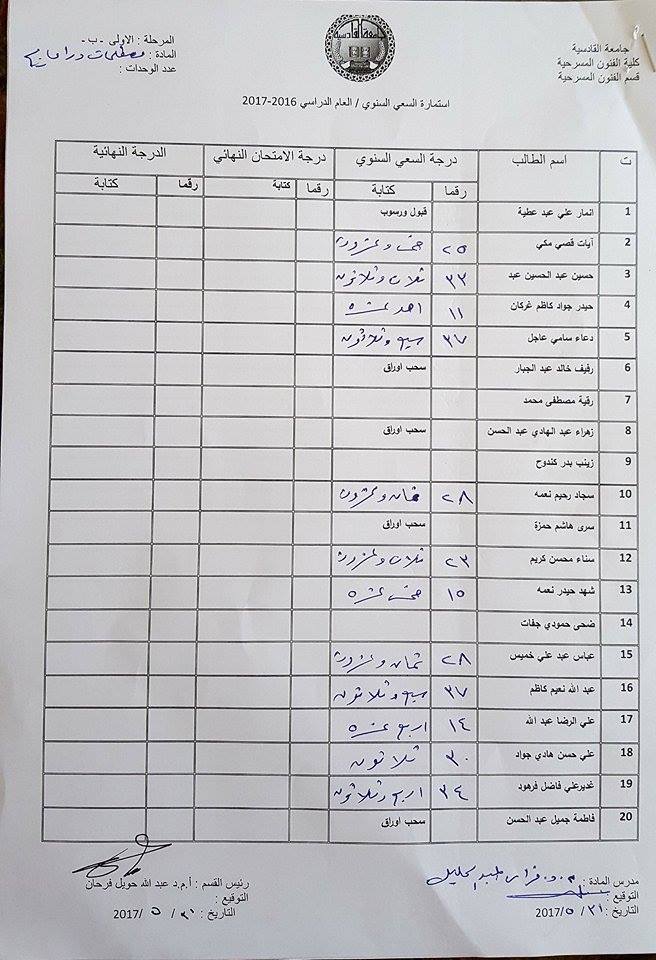 جامعة القادسية
كلية الفنون المسرحية
قسم الفنون المسرحية
جامعة القادسية
المرحلة : الاولى -ب-
المادة : مصطلحات درامية
عدد الوحدات :
استمارة السعي السنوي / العام الدراسي 2016-2017
ت اسم الطالب درجة السعي السنوي درجة الامتحان النهائي الدرجة النهائية
رقما كتابة رقما كتابة رقما كتابة
1 انمار علي عبد عطية قبول ورسوب
2 آيات قصي مكي ٢٥ خمس وعشرون
3 حسين عبد الحسين عبد ٣٣ ثلاث وثلاثون
4 حيدر جواد كاظم غركان ١١ احد عشره
5 دعاء سامي عاجل ٣٧ سبع وثلاثون
6 رفيف خالد عبد الجبار سحب اوراق
7 رقية مصطفى محمد
8 زهراء عبد الهادي عبد الحسن سحب اوراق
9 زينب بدر كندوح
10 سجاد رحيم نعمه ٢٨ ثمان وعشرون
11 سرى هاشم حمزة سحب اوراق
12 سناء محسن كريم ٢٣ ثلاث وعشرون
13 شهد حيدر نعمه ١٥ خمس عشره
14 ضحى حمودي جفات
15 عباس عبد علي خميس ٢٨ ثمان وعشرون
16 عبد الله نعيم كاظم ٣٧ سبع وثلاثون
17 علي الرضا عبد الله ١٤ اربع عشره
18 علي حسن هادي جواد ٣٠ ثلاثون
19 غديرعلي فاضل فرهود ٣٤ اربع وثلاثون
20 فاطمة جميل عبد الحسن سحب اوراق
مدرس المادة :
التوقيع :
التاريخ : ٣١/ ٥ /2017
رئيس القسم : أ.م.د عبد الله حويل فرحان
التوقيع :
التاريخ : ٣١/ ٥ /2017